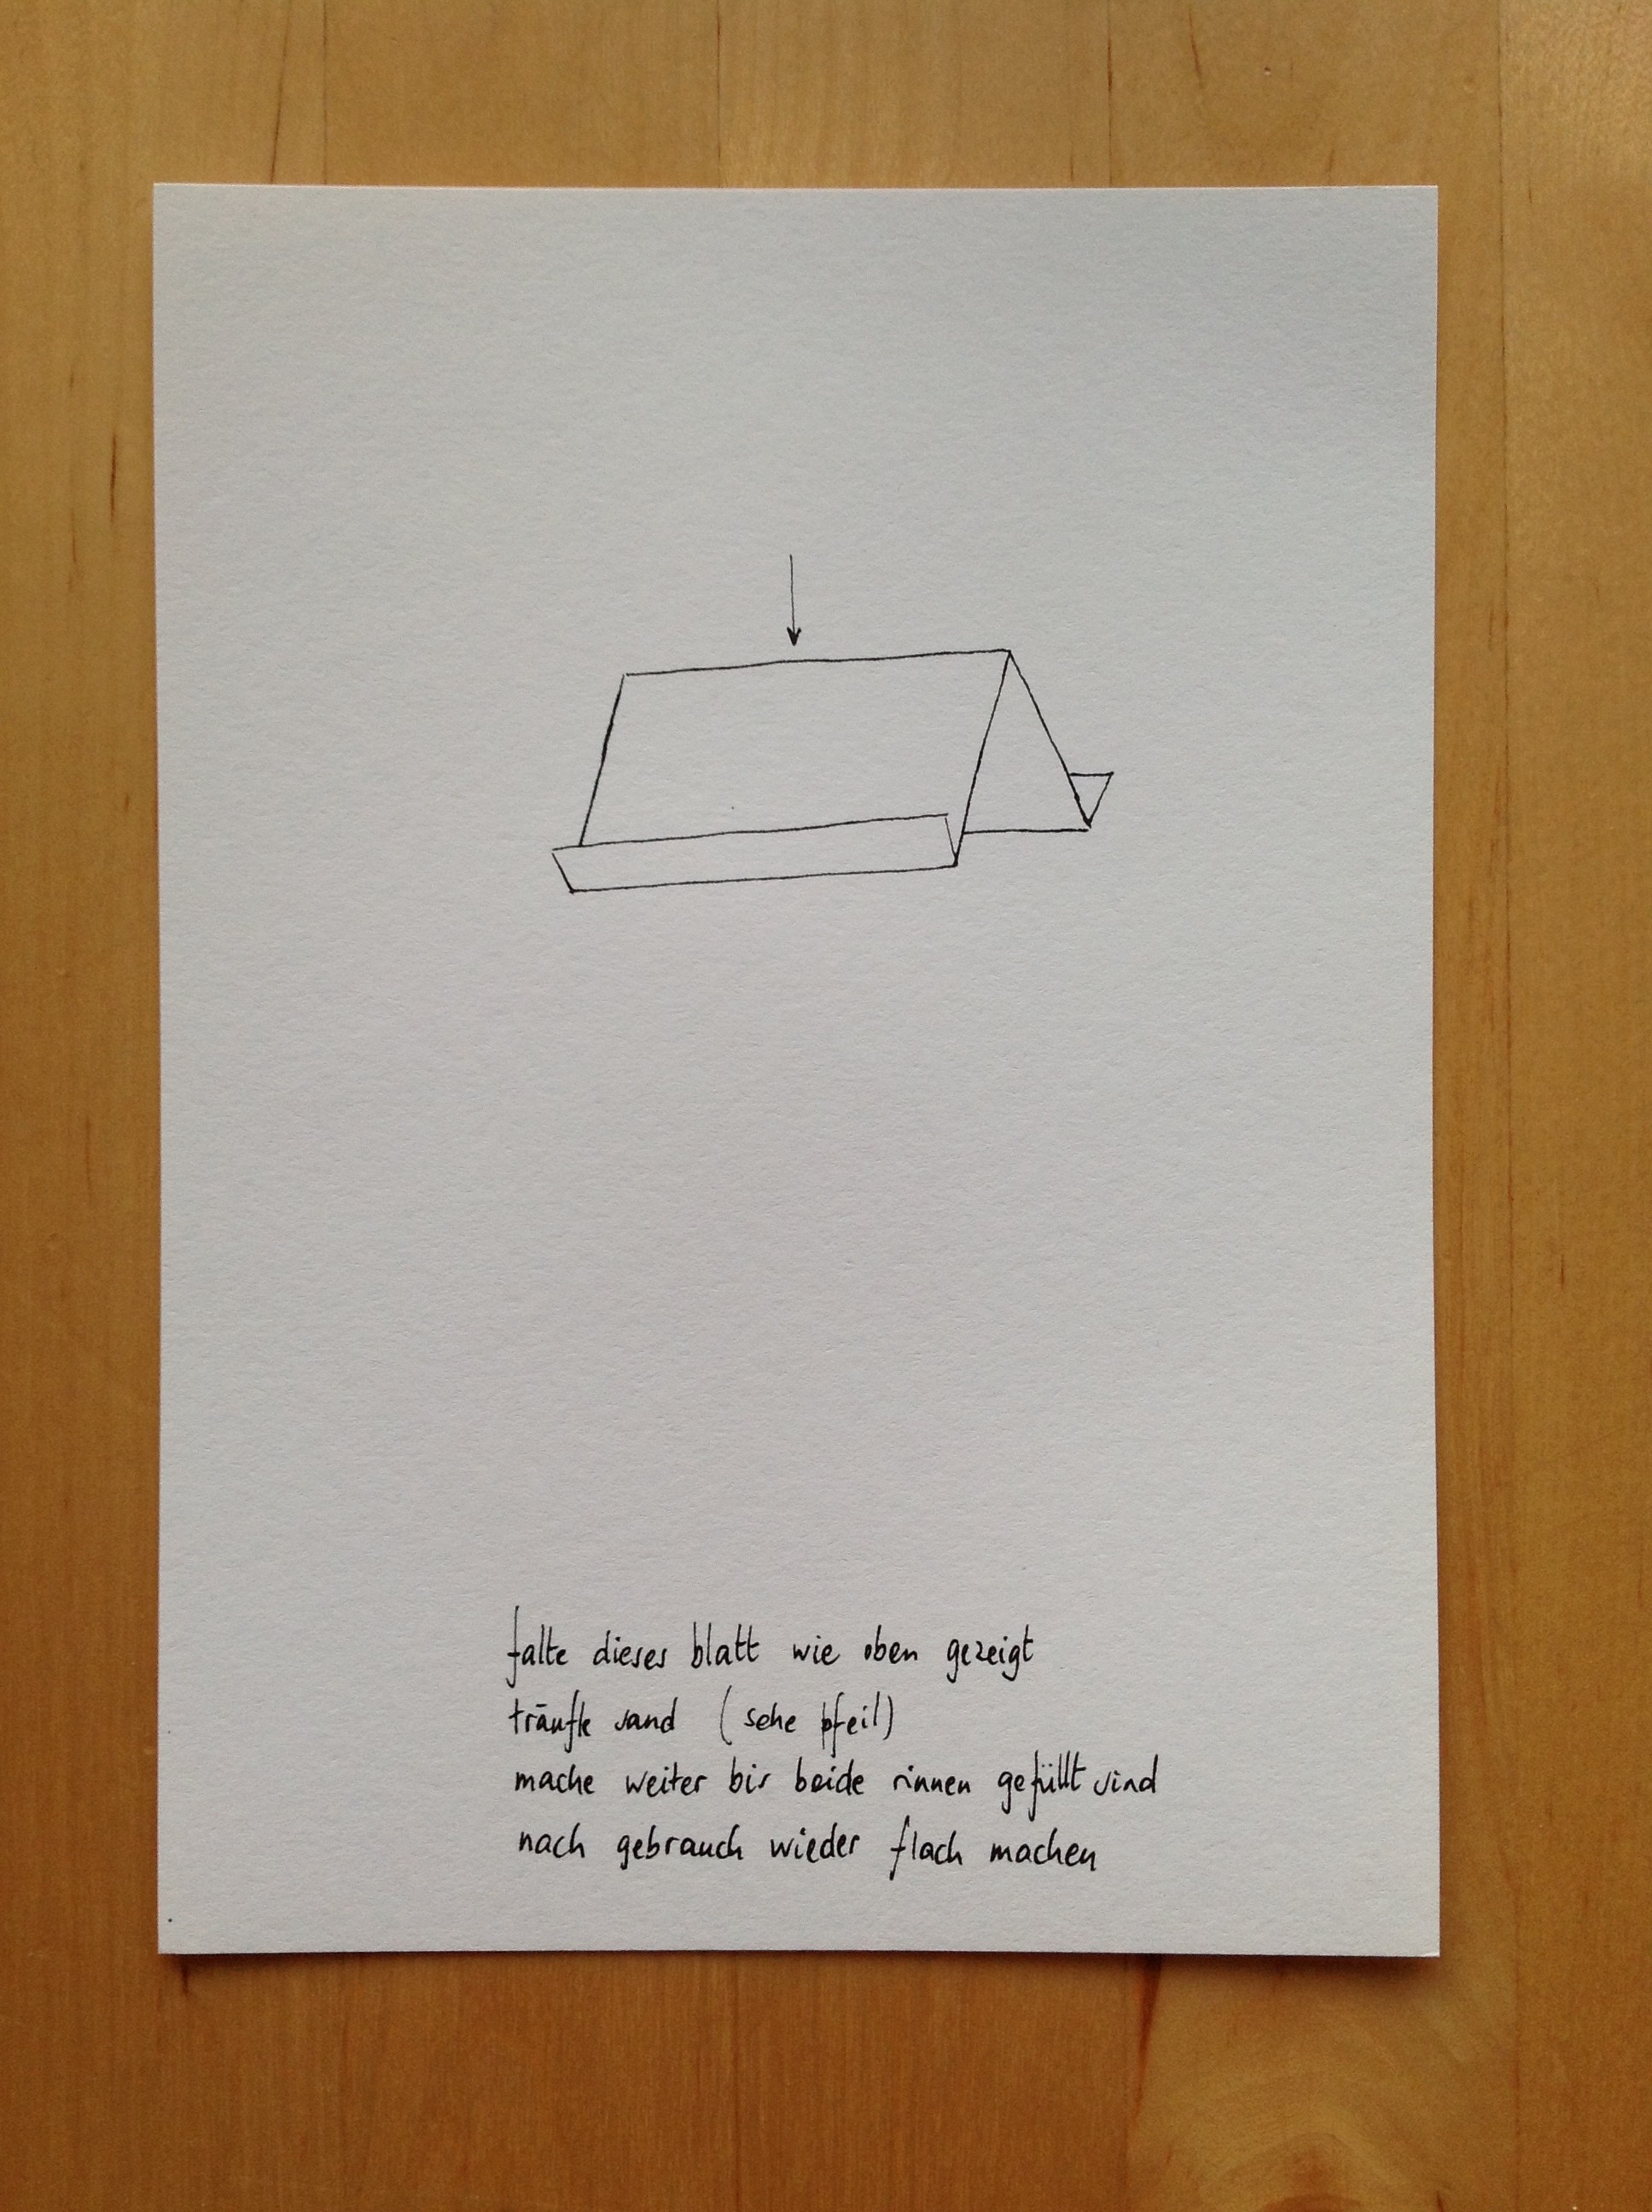 falte dieses blatt wie oben gezeigt
träufle sand (sehe pfeil)
mache weiter bis beide rinnen gefüllt sind
nach gebrauch wieder flach machen